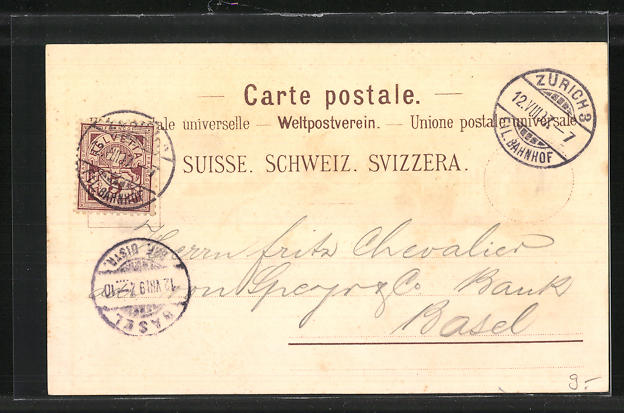 Carte postale.
ale universelle — Weltpostverein. — Unione postale universale
SUISSE. SCHWEIZ. SVIZZERA.
ZÜRICH 3
12.VIII.97–7
FIL.BAHNHOF
HELVETIA
L.BAHNHOF
BRF. DISTR.
12.VIII.97.–10
BASEL
Herrn Fritz Chevalier
von Speyr & Co Bank
Basel
9.-